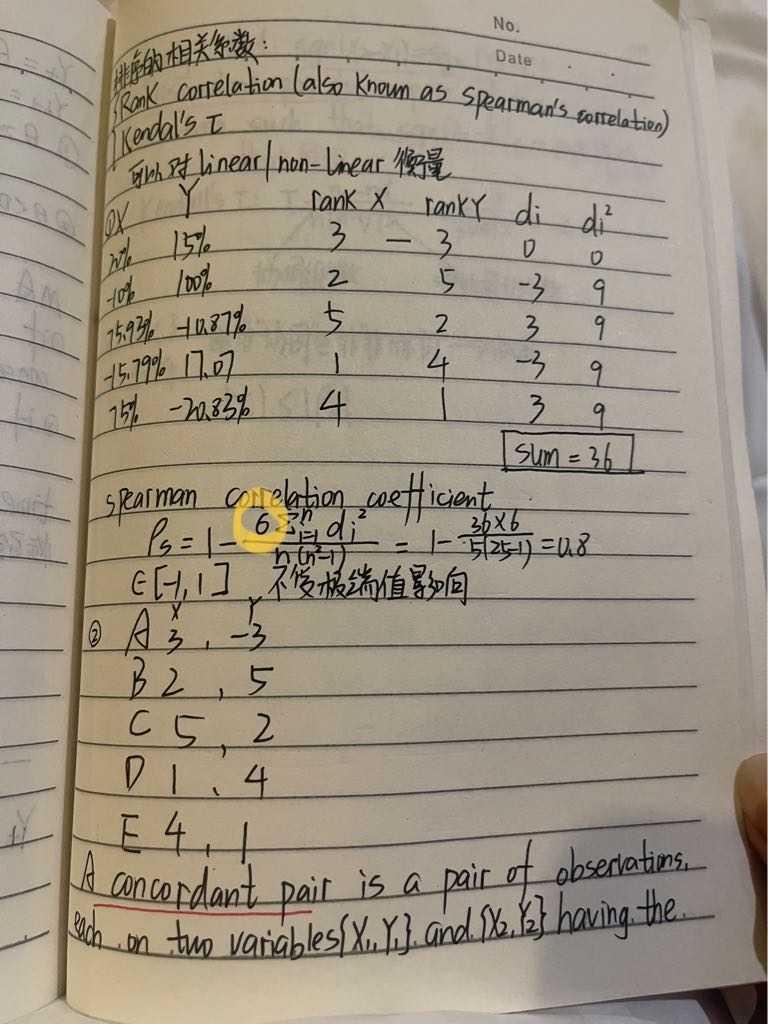 No.
Date
排序的相关系数:
Rank correlation (also known as spearman's correlation)
Kendal's τ
可以对 linear/non-linear 衡量
① X Y rank X rank Y di di²
20% 15% 3 — 3 0 0
-10% 100% 2 5 -3 9
75.93% -10.87% 5 2 3 9
-15.79% 17.07 1 4 -3 9
75% -20.83% 4 1 3 9
sum = 36
spearman correlation coefficient
ρs = 1 - 6Σⁿᵢ₌₁ di² / n(n²-1) = 1 - 36×6 / 5(25-1) = 0.8
∈[-1,1] 不受极端值影响
X Y
② A 3, -3
B 2, 5
C 5, 2
D 1, 4
E 4, 1
A concordant pair is a pair of observations,
each on two variables {X₁,Y₁} and {X₂,Y₂} having the